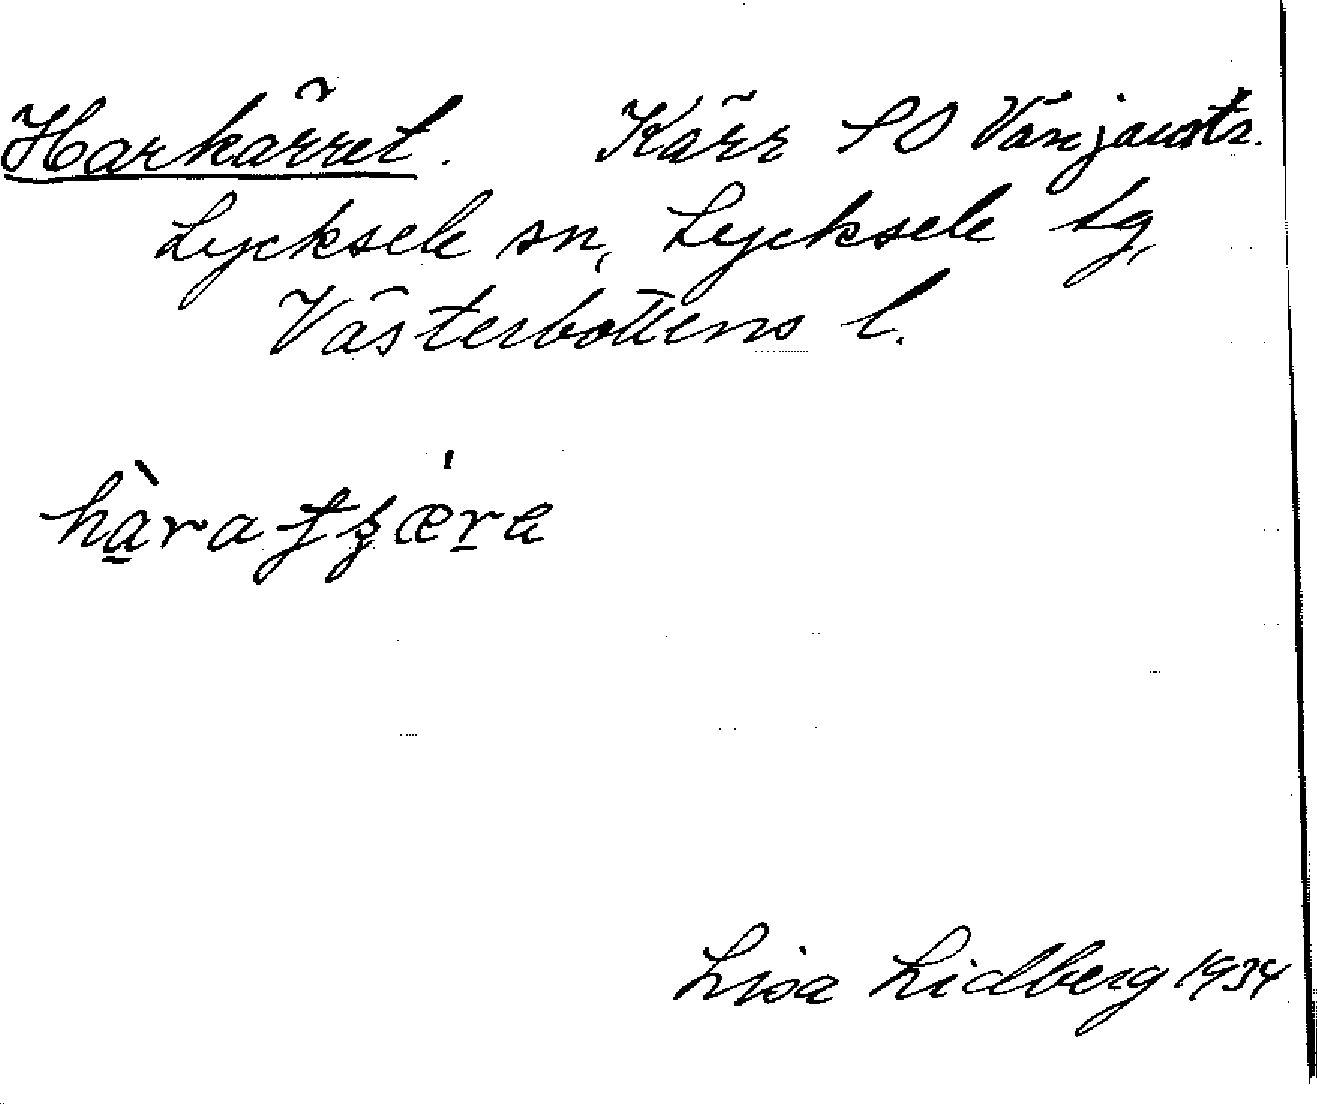 Harkärret. Kärr SO Vänjaustr.
Lycksele sn, Lycksele tg,
Västerbottens l.
Lisa Lidberg 1934